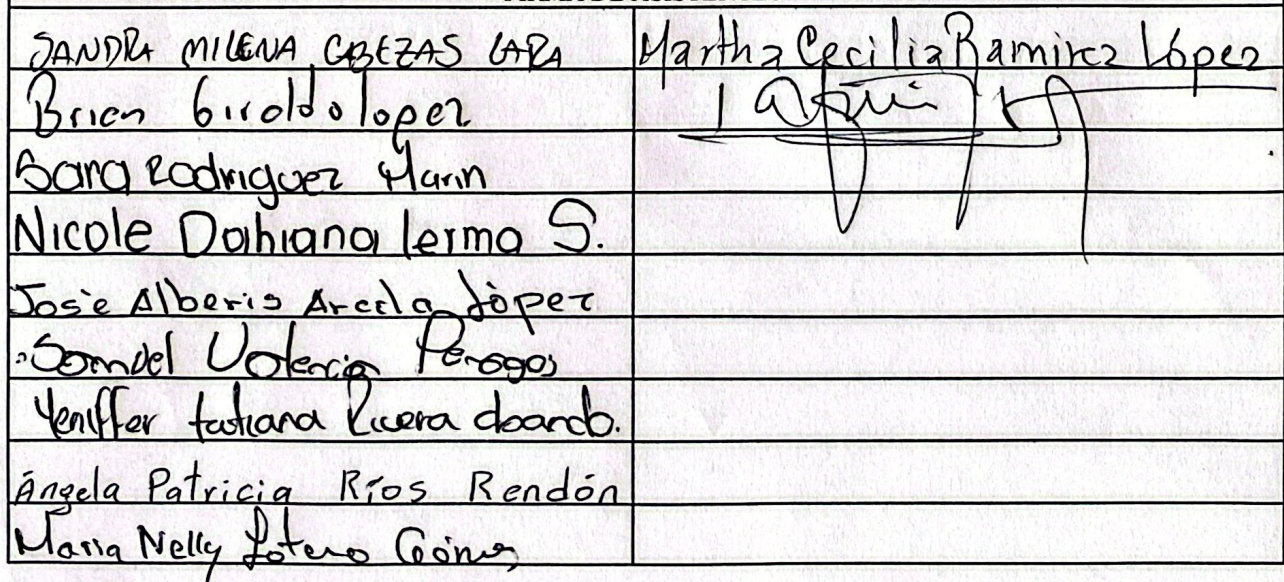 SANDRA MILENA CABEZAS LARA
Martha Cecilia Ramirez López
Brien Giraldo lopez
Sara Rodriguez Marin
Nicole Dahiana lerma S.
Josè Alberis Arcila Lòpez
Samuel Valencia Penagos
Yeniffer tatiana Rivera
Ángela Patricia Ríos Rendón
Maria Nelly Lotero Gómez